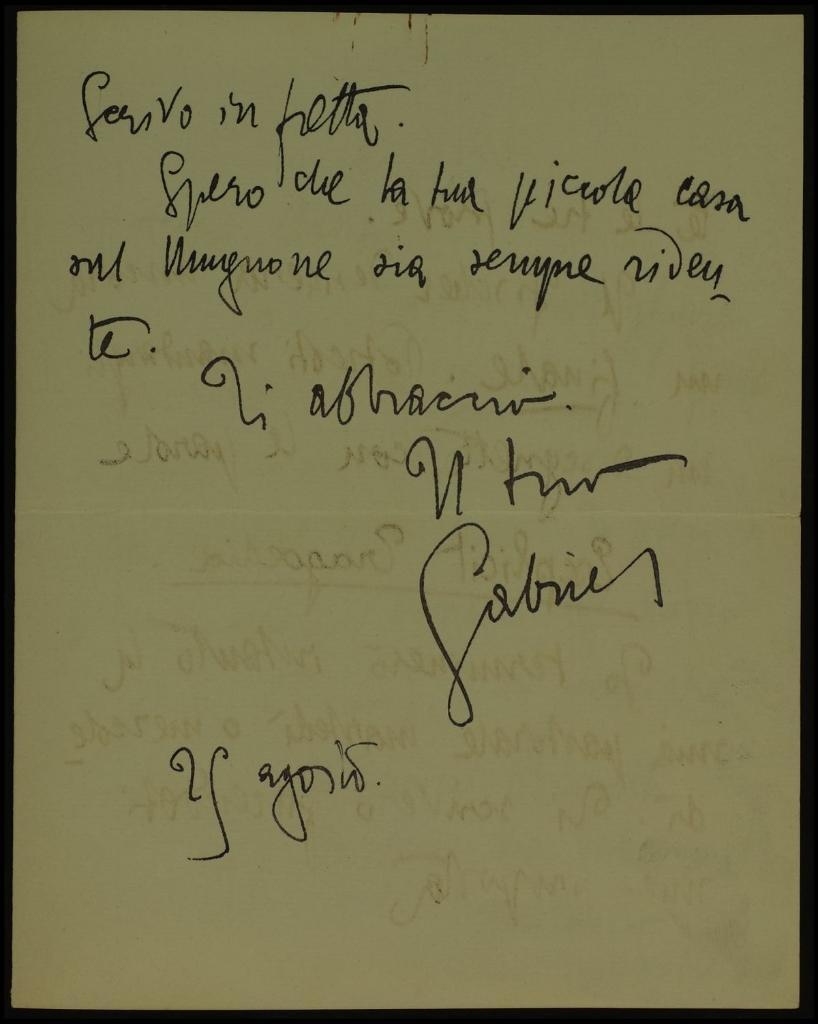 Scrivo in fretta.
Spero che la tua piccola casa
sul Mugnone sia sempre riden-
te.
Ti abbraccio.
Il tuo
Gabriel
25 agosto.